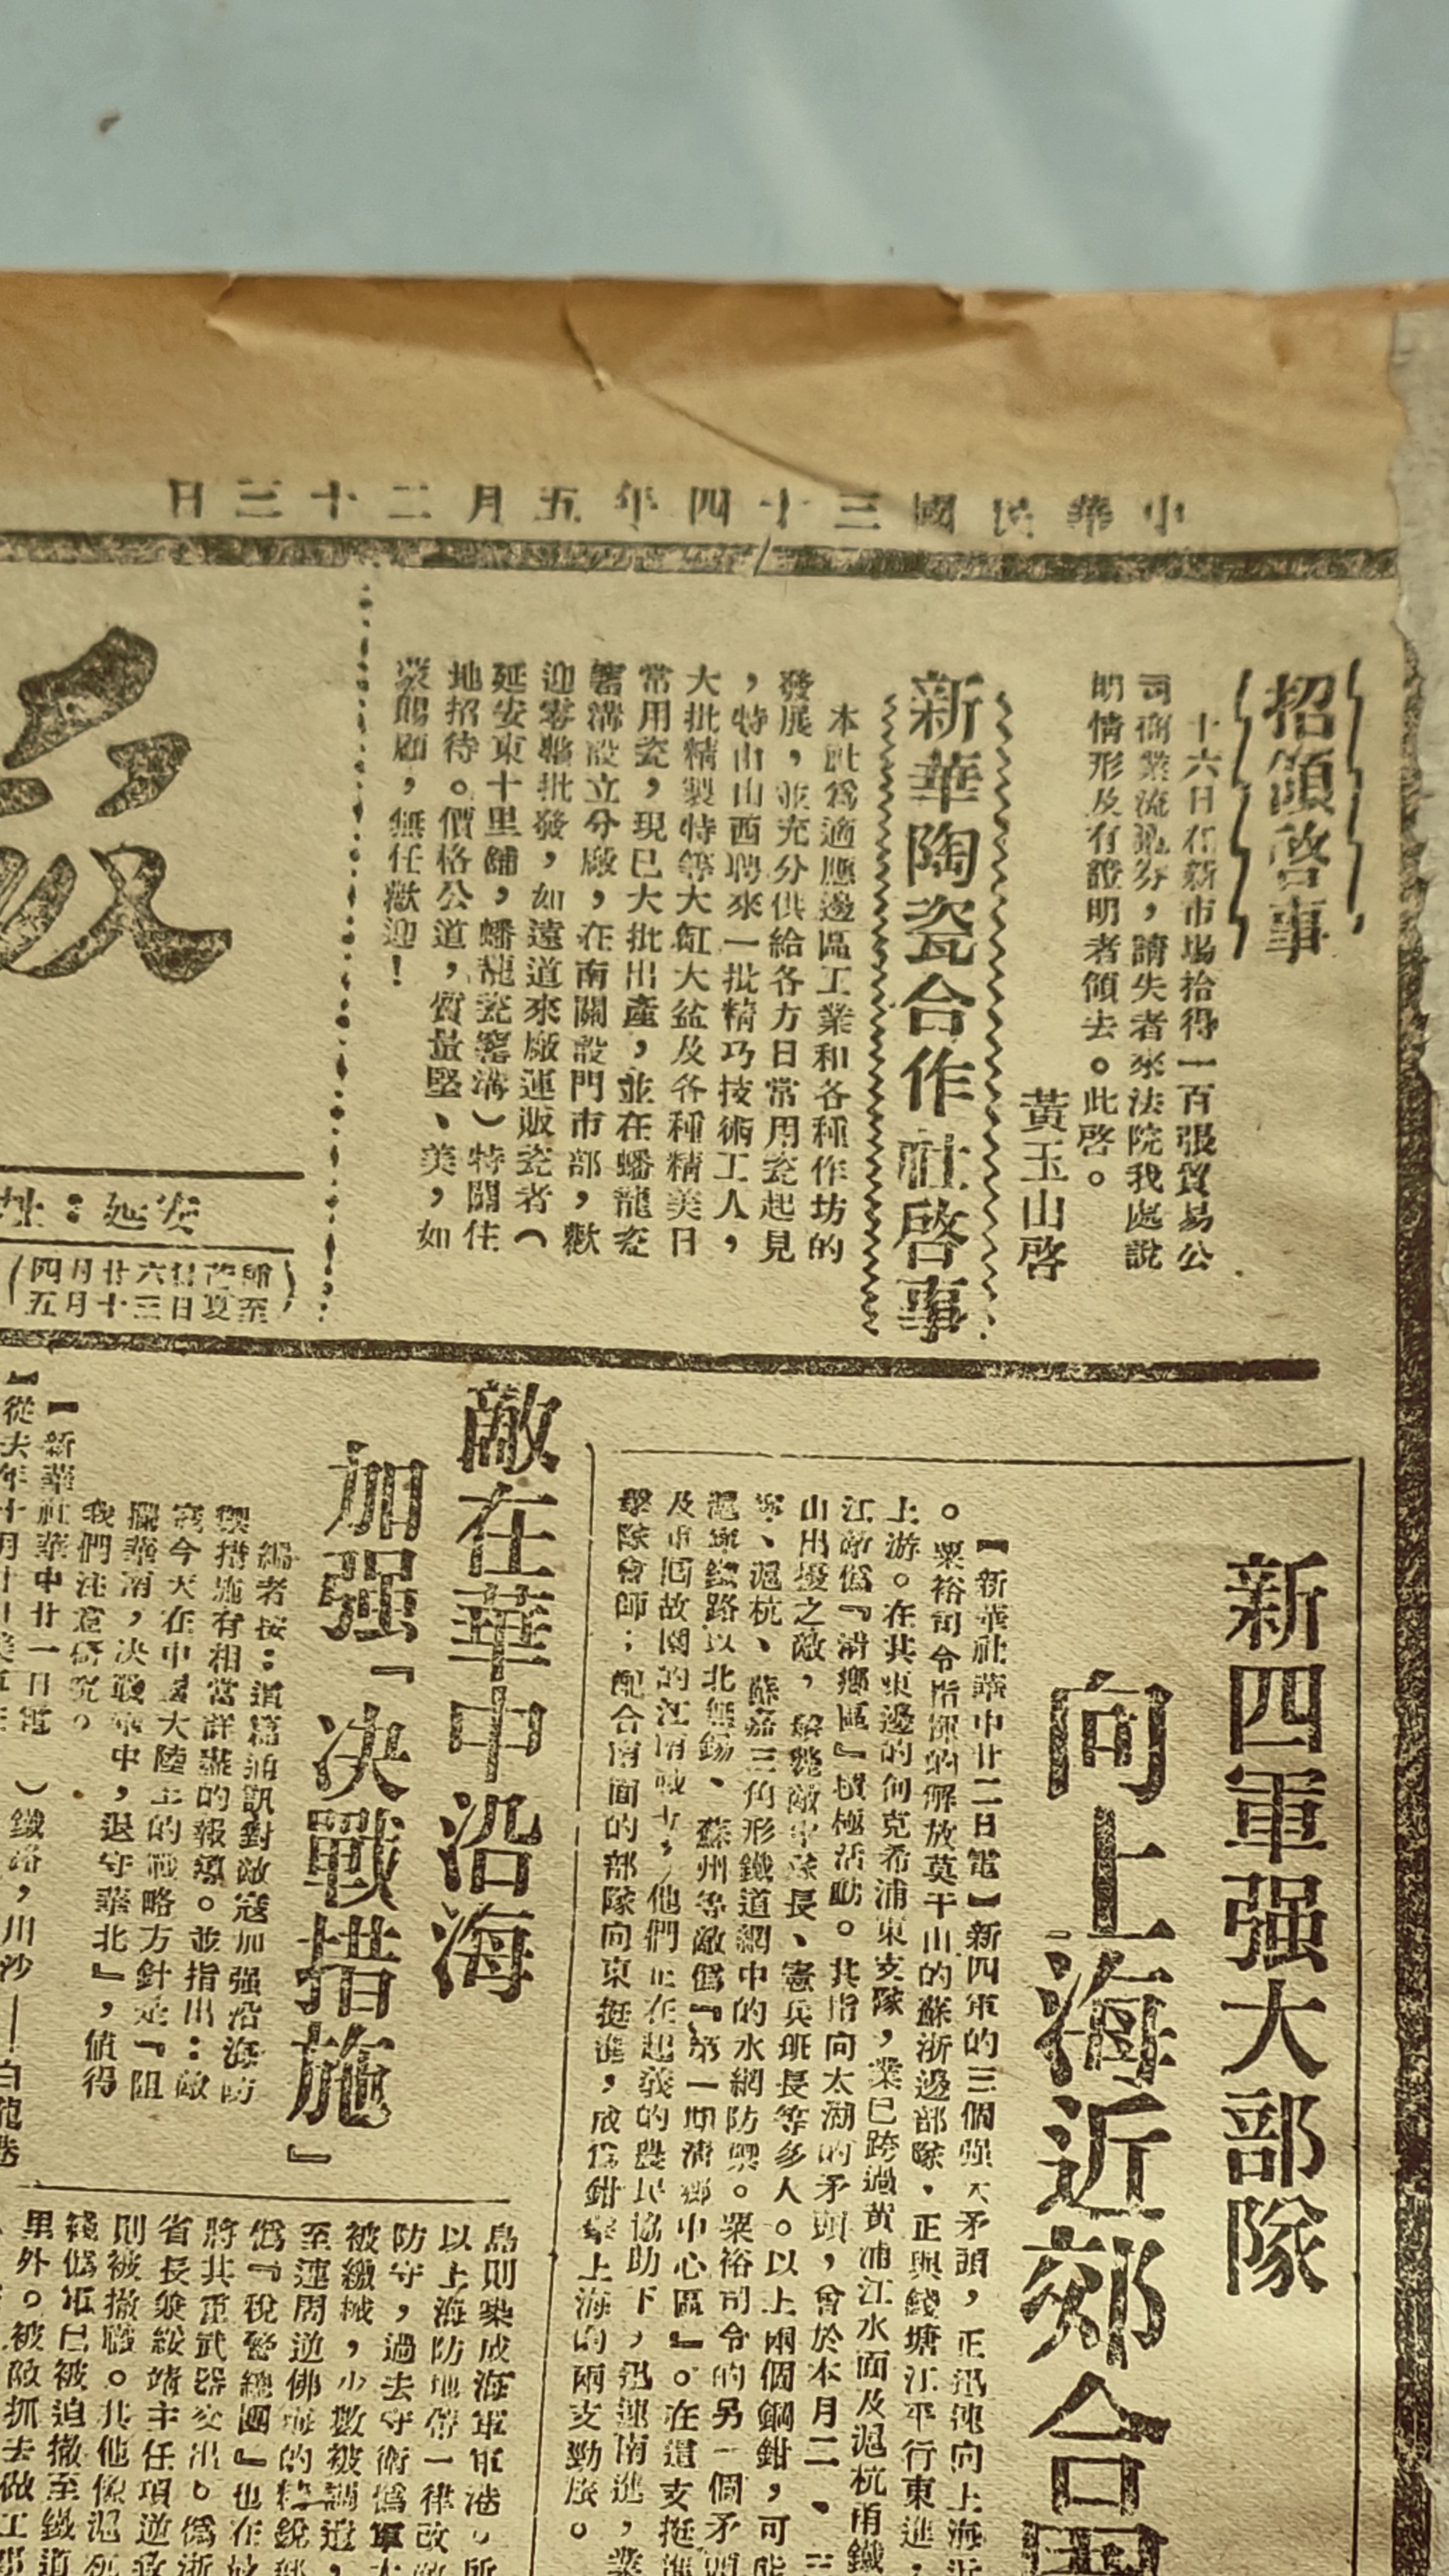 中華民國三十四年五月二十三日
招領啓事
十六日在新市場拾得一百張貿易公
司商業流通券，請失者來法院我處說
明情形及有證明者領去。此啓。
黃玉山啓
新華陶瓷合作社啓事
本社爲適應邊區工業和各種作坊的
發展，並充分供給各方日常用瓷起見
，特由山西聘來一批精巧技術工人，
大批精製特等大缸大盆及各種精美日
常用瓷，現已大批出產，並在蟠龍瓷
窰溝設立分廠，在南關設門市部，歡
迎零躉批發，如遠道來廠運販瓷者（
延安東十里舖，蟠龍瓷窰溝）特闢住
地招待。價格公道，質量堅、美，如
蒙賜顧，無任歡迎！
報
址：延安
新四軍强大部隊
向上海近郊合圍
【新華社華中廿二日電】新四軍的三個强大矛頭，正迅速向上海近
。粟裕司令指揮的解放莫干山的蘇浙邊部隊，正與錢塘江平行東進，
上游。在其東邊的何克希浦東支隊，業已跨過黃浦江水面及滬杭甬鐵
江敵僞『清鄉區』積極活動。其指向太湖的矛頭，曾於本月二、三
山出擾之敵，斃敵中隊長、憲兵班長等多人。以上兩個鋼鉗，可能
寧、滬杭、蘇嘉三角形鐵道網中的水網防禦。粟裕司令的另一個矛頭
滬寧鐵路以北無錫、蘇州等敵僞『第一期清鄉中心區』。在這支挺進
及重回故園的江南戰士，他們正在起義的農民協助下，迅速南進，業
擊隊會師；配合南面的部隊向東挺進，成爲鉗擊上海的兩支勁旅。
敵在華中沿海
加强『決戰措施』
編者按：這篇通訊對敵寇加强沿海防
禦措施有相當詳盡的報導。並指出：敵
寇今天在中國大陸上的戰略方針是『阻
攔華南，決戰華中，退守華北』，值得
我們注意研究。
【新華社華中廿一日電
】從去年十月
）鐵路，川沙—白龍港
島則築成海軍軍港。所
以上海防地僞一律改
防守，過去守衛僞軍大
被繳械，少數被調
至連周逆佛海的精銳
僞『稅警總團』也在
將其重武器交出。僞浙
省長兼綏靖主任項逆
則被撤職。其他係滬
錢僞軍已被迫撤至鐵道
里外。被敵抓去做工